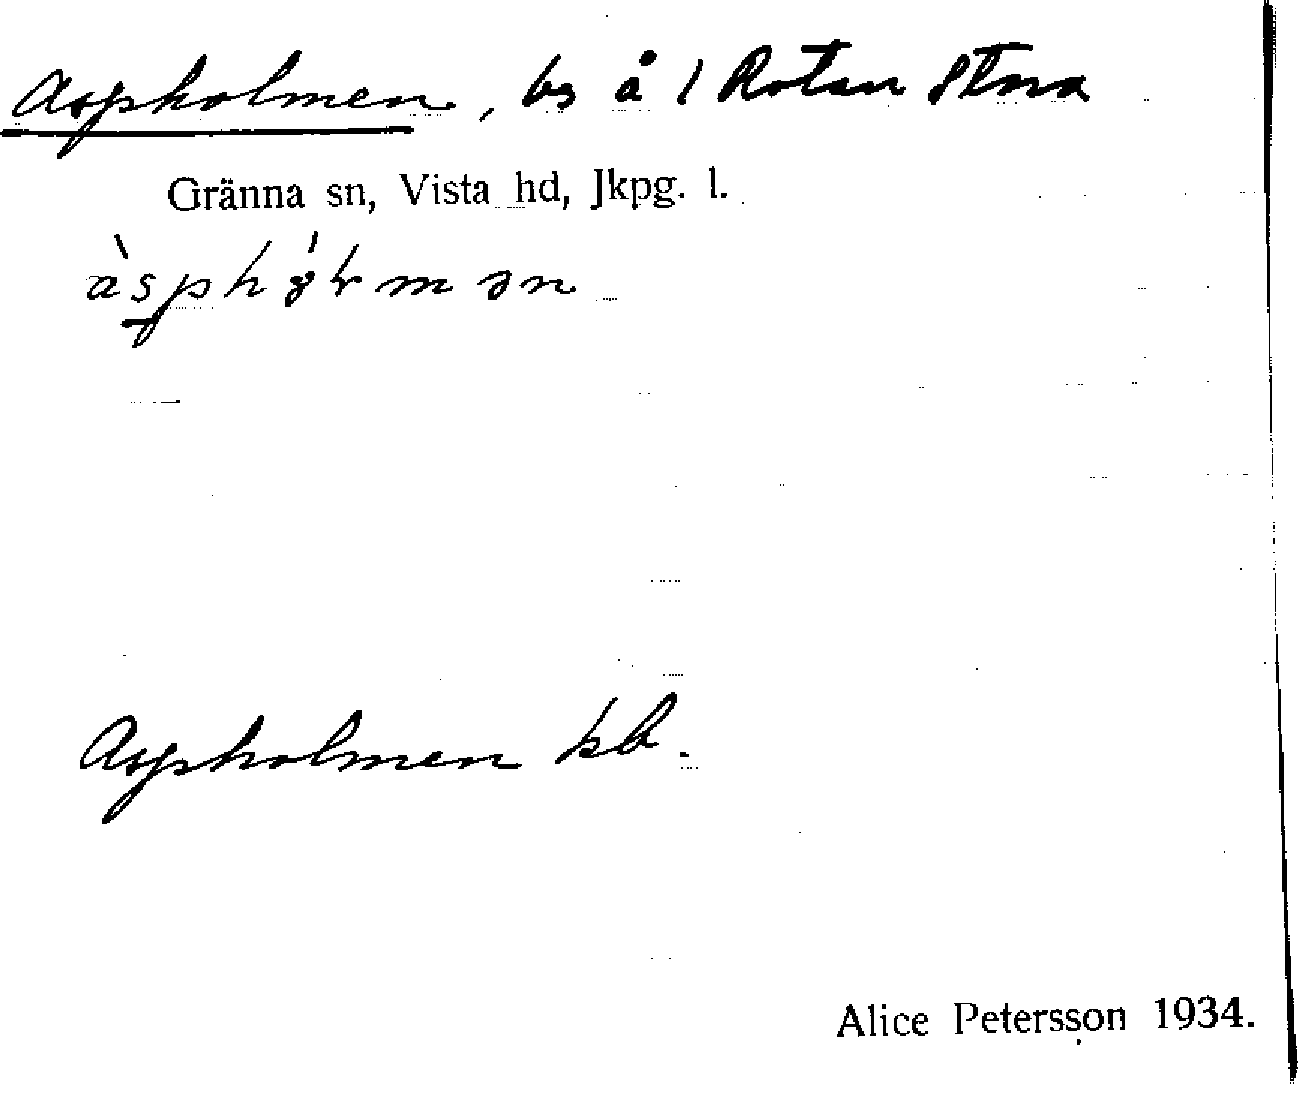 Aspholmen, bs å 1 Rotan Stora
Gränna sn, Vista hd, Jkpg. l.
Aspholmen kb.
Alice Petersson 1934.